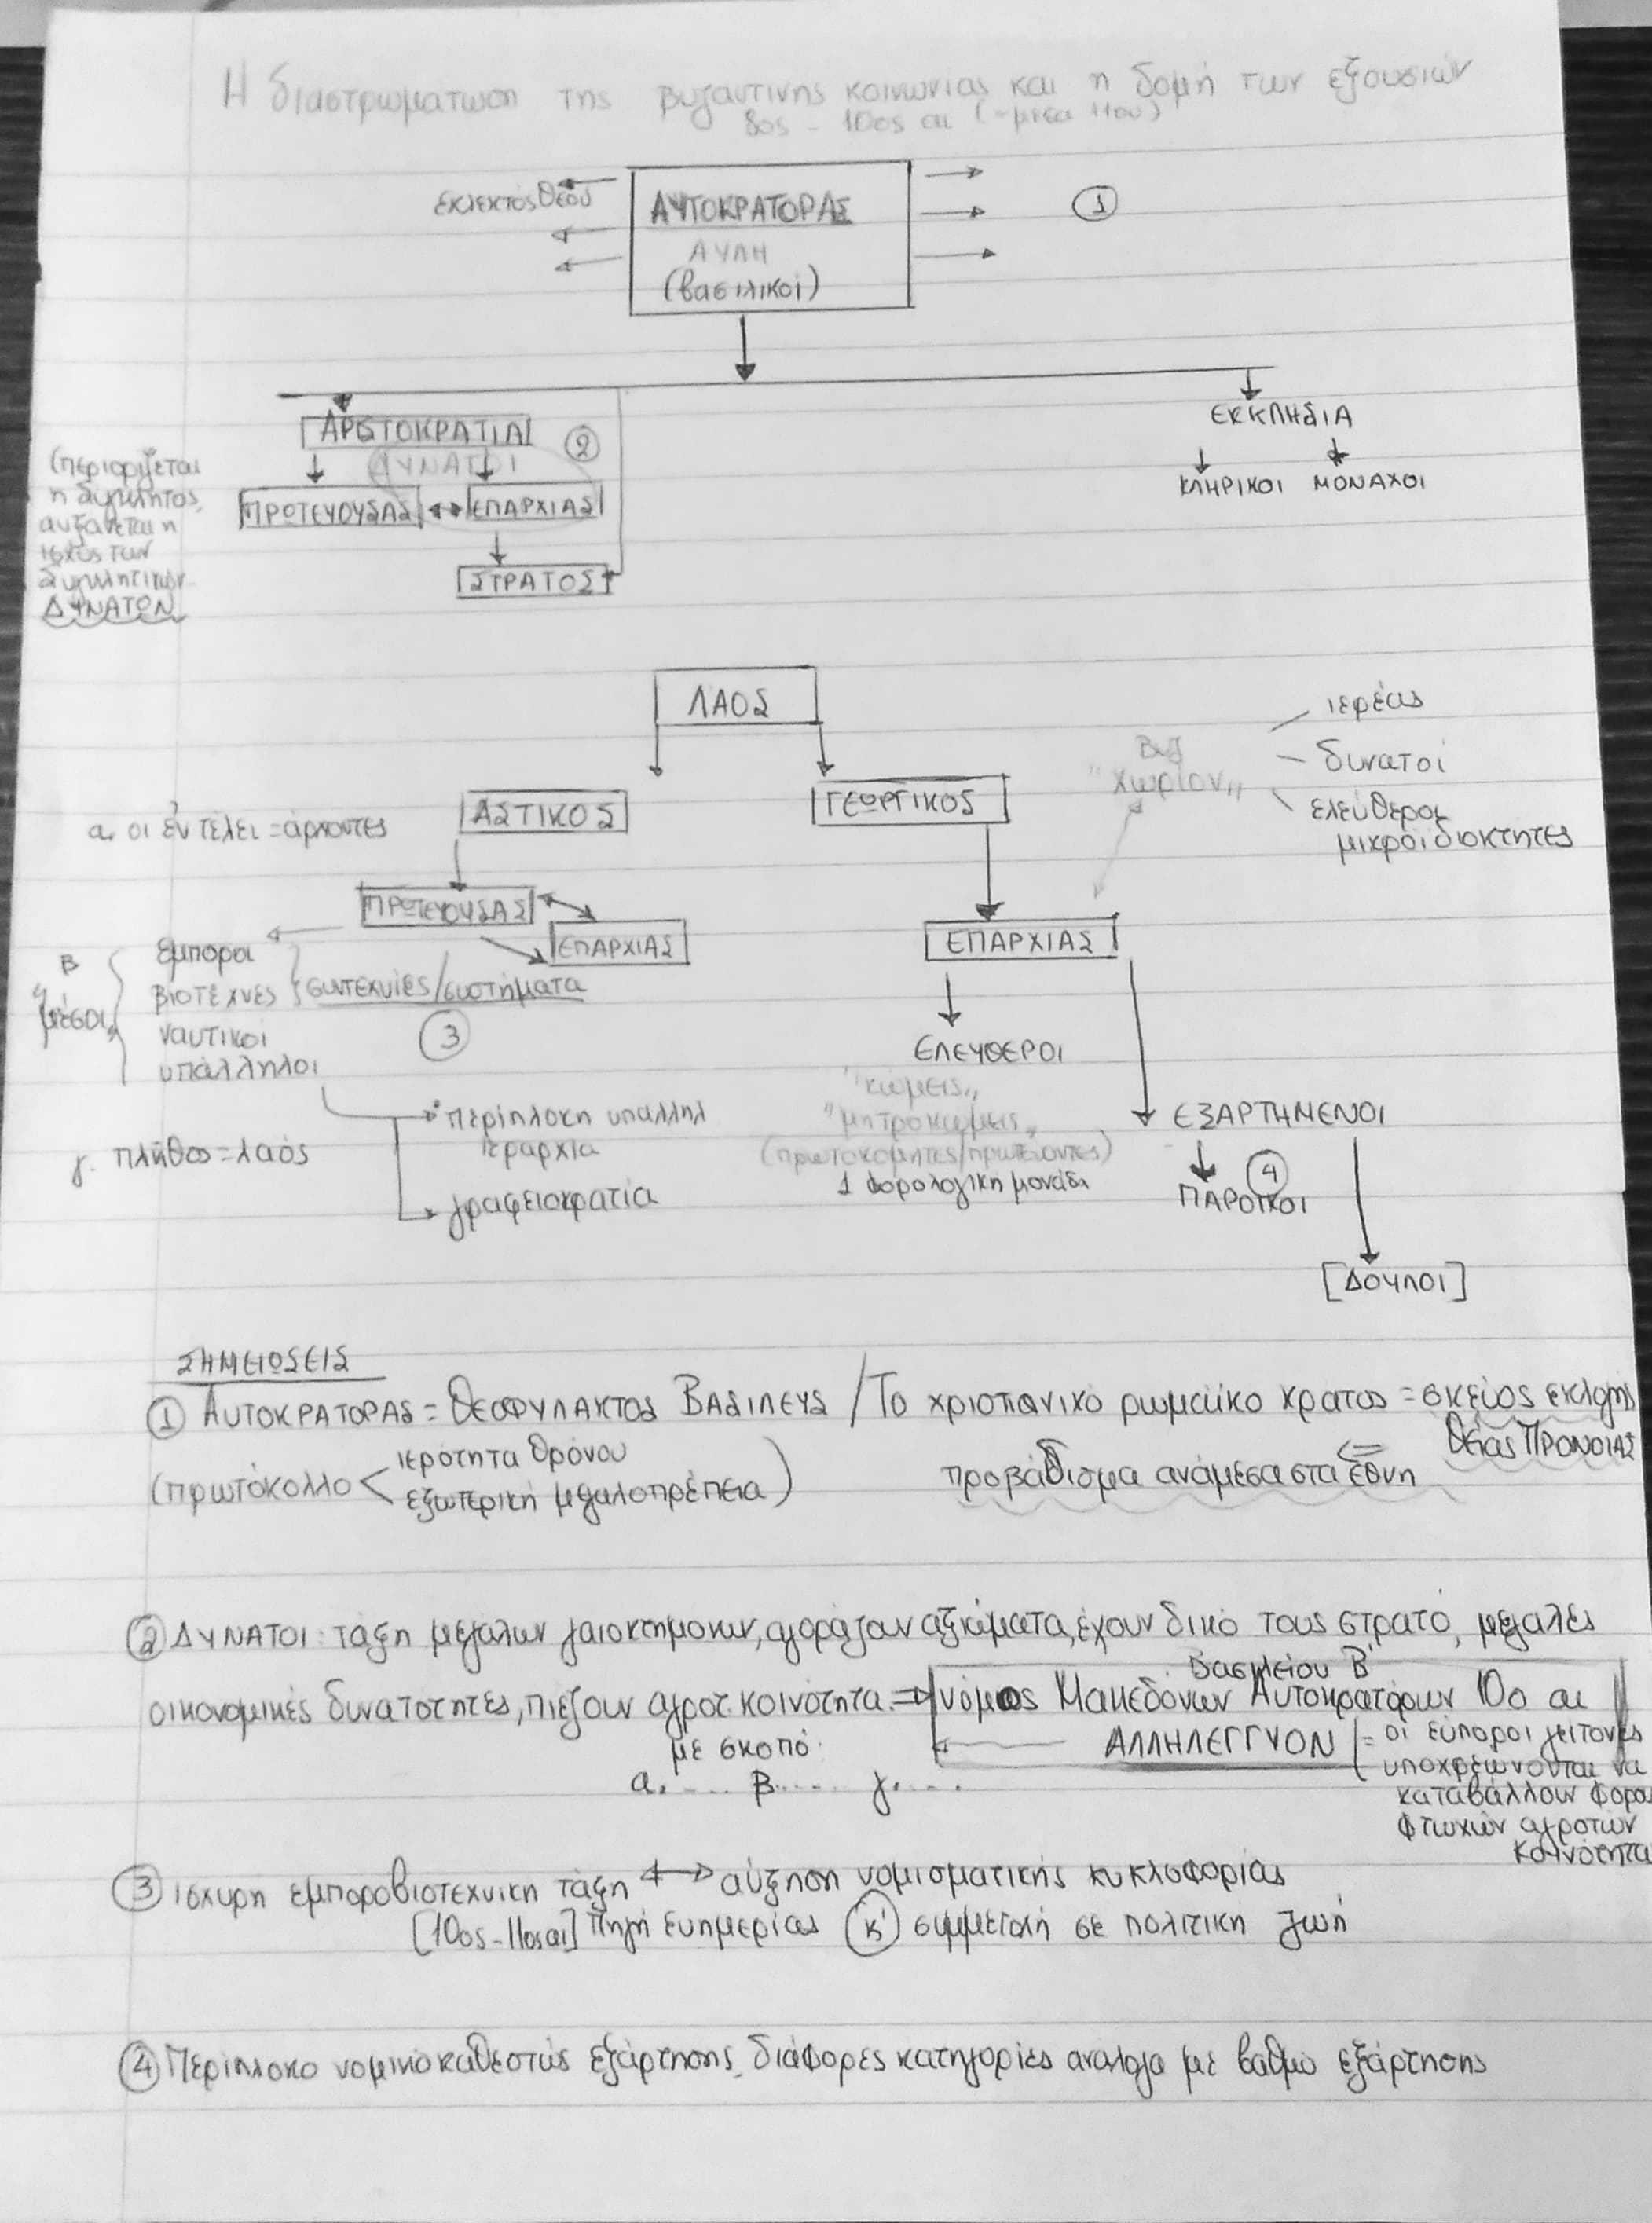 Η διαστρωμάτωση της βυζαντινής κοινωνίας και η δομή των εξουσιών
8ος - 10ος αι (-μέσα 11ου)
εκλεκτός Θεού
ΑΥΤΟΚΡΑΤΟΡΑΣ
1
ΑΥΛΗ
(βασιλικοί)
ΑΡΙΣΤΟΚΡΑΤΙΑ
2
ΔΥΝΑΤΟΙ
ΕΚΚΛΗΣΙΑ
ΚΛΗΡΙΚΟΙ ΜΟΝΑΧΟΙ
(περιορίζεται
η σύγκλητος,
αυξάνεται η
ισχύς των
συγκλητικών-
ΔΥΝΑΤΩΝ
ΠΡΩΤΕΥΟΥΣΑΣ
ΕΠΑΡΧΙΑΣ
ΣΤΡΑΤΟΣ
ΛΑΟΣ
Βυζ
"χωρίον"
ιερέας
δυνατοί
ελεύθεροι
μικροϊδιοκτήτες
α. οι ἐν τέλει = άρχοντες
ΑΣΤΙΚΟΣ
ΓΕΩΡΓΙΚΟΣ
ΠΡΩΤΕΥΟΥΣΑΣ
ΕΠΑΡΧΙΑΣ
ΕΠΑΡΧΙΑΣ
β
"μέσοι"
έμποροι
βιοτέχνες
συντεχνίες/συστήματα
ναυτικοί
3
υπάλληλοι
περίπλοκη υπαλληλ
ιεραρχία
γραφειοκρατία
γ. πλήθος = λαός
ΕΛΕΥΘΕΡΟΙ
"κώμεις"
"μητροκώμεις"
(πρωτοκομητες/πρωτεύοντες)
1 φορολογική μονάδα
ΕΞΑΡΤΗΜΕΝΟΙ
4
ΠΑΡΟΙΚΟΙ
[ΔΟΥΛΟΙ]
ΣΗΜΕΙΩΣΕΙΣ
1 ΑΥΤΟΚΡΑΤΟΡΑΣ = ΘΕΟΦΥΛΑΚΤΟΣ ΒΑΣΙΛΕΥΣ / Το χριστιανικό ρωμαϊκο κρατος = σκεύος εκλογής
θείας ΠΡΟΝΟΙΑΣ
(πρωτόκολλο < ιερότητα θρόνου
εξωτερική μεγαλοπρέπεια)
<= προβάδισμα ανάμεσα στα έθνη
2 ΔΥΝΑΤΟΙ: τάξη μεγάλων γαιοκτημόνων, αγοράζουν αξιώματα, έχουν δικό τους στρατό, μεγάλες
Βασιλείου Β'
οικονομικές δυνατότητες, πιέζουν αγροτ. κοινότητα. => νόμος Μακεδόνων Αυτοκρατόρων 10ο αι
με σκοπό:
α..... β..... γ.....
ΑΛΛΗΛΕΓΓΥΟΝ = οι εύποροι γείτονες
υποχρεώνονται να
καταβάλλουν φόρο
φτωχών αγροτών
κοινότητα
3 ισχυρη εμποροβιοτεχνικη τάξη <-> αύξηση νομισματικής κυκλοφορίας
[10ος-11ος αι] πηγή ευημερίας κ' συμμετοχή σε πολιτικη ζωή
4 Περίπλοκο νομικό καθεστώς εξάρτησης, διάφορες κατηγορίες αναλογα με βαθμό εξάρτησης